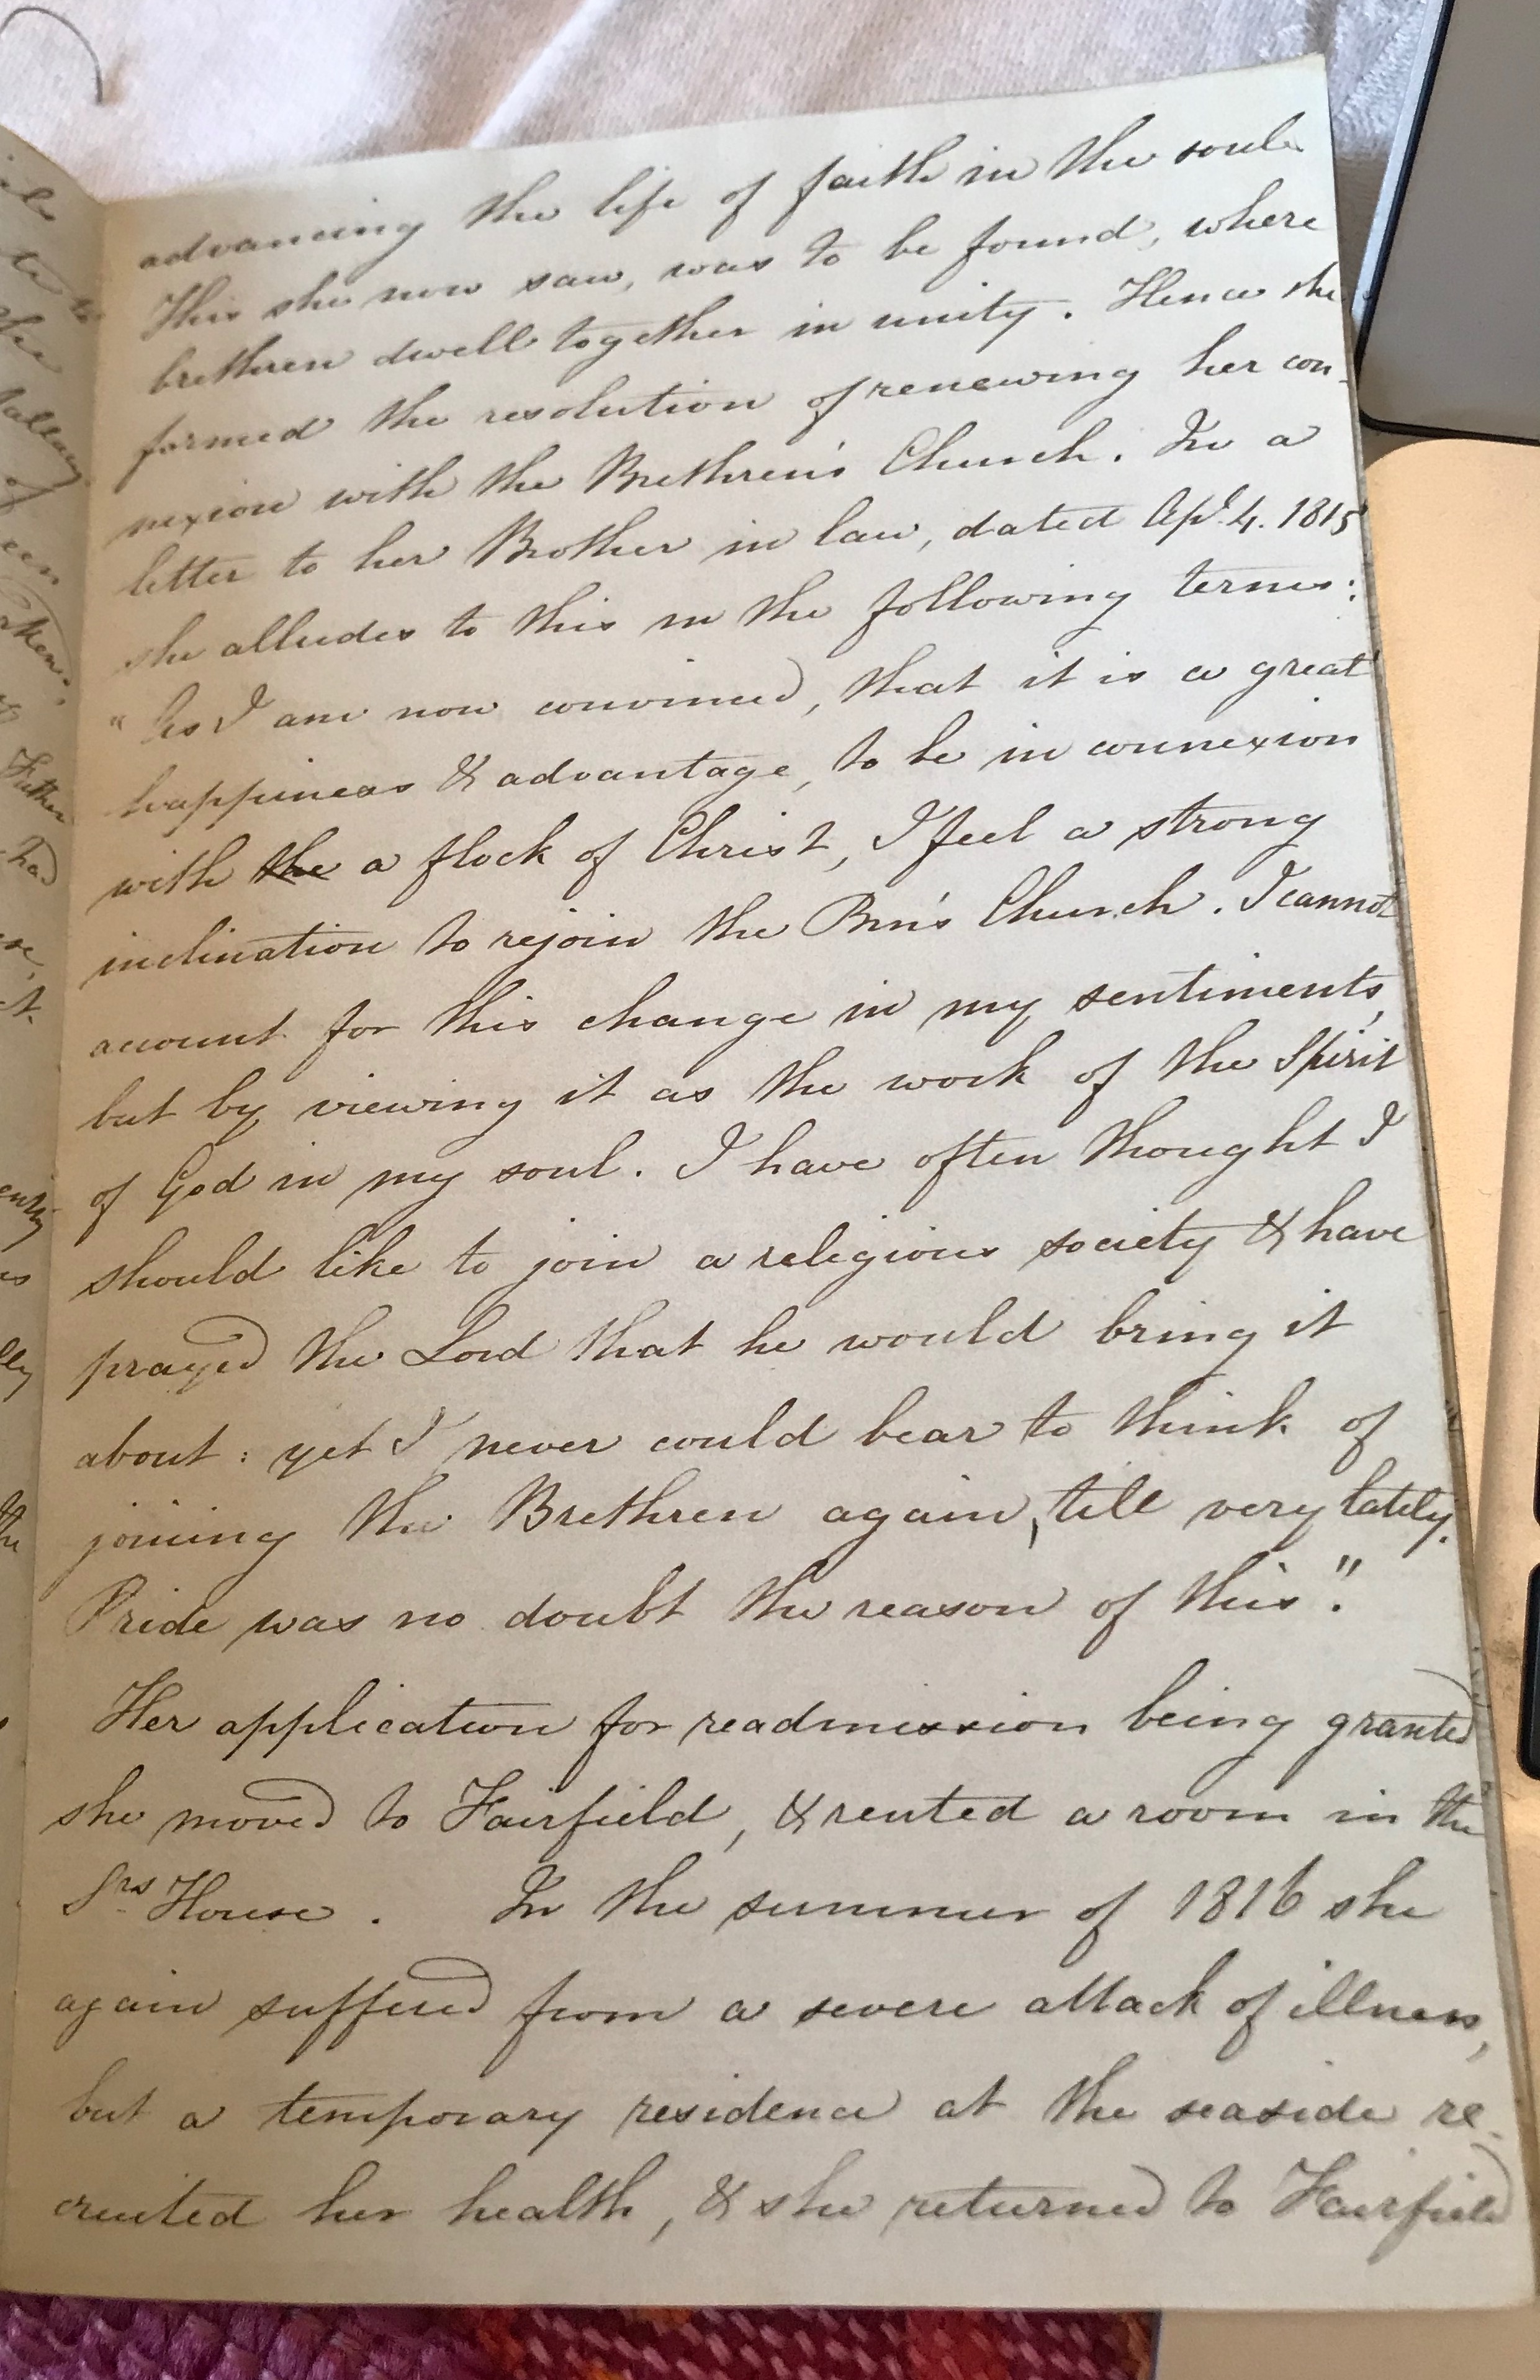 advancing the life of faith in the soul.
This she now saw, was to be found, where
brethren dwell together in unity. Hence she
formed the resolution of renewing her con-
nexion with the Brethren's Church. In a
letter to her Brother in law, dated Apl. 4. 1815
she alludes to this in the following terms:
"As I am now convinced, that it is a great
happiness & advantage, to be in connexion
with the a flock of Christ, I feel a strong
inclination to rejoin the Brn's Church. I cannot
account for this change in my sentiments,
but by viewing it as the work of the Spirit
of God in my soul. I have often thought I
should like to join a religious society & have
prayed the Lord that he would bring it
about: yet I never could bear to think of
joining the Brethren again, till very lately.
Pride was no doubt the reason of this".
Her application for readmission being granted
she moved to Fairfield, & rented a room in the
Srs House. In the summer of 1816 she
again suffered from a severe attack of illness,
but a temporary residence at the seaside re-
cruited her health, & she returned to Fairfield